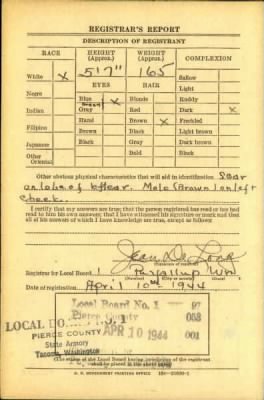 REGISTRAR'S REPORT
DESCRIPTION OF REGISTRANT
RACE HEIGHT (Approx.) WEIGHT (Approx.) COMPLEXION
5'7" 165
White X Sallow
EYES HAIR Light
Negro Blue X Blonde Ruddy
Indian Gray Red Dark X
Hazel Brown X Freckled
Filipino Brown Black Light brown
Japanese Black Gray Dark brown
Other Oriental Bald Black
Other obvious physical characteristics that will aid in identification Scar
on lobe of left ear. Mole (Brown) on left
cheek.
I certify that my answers are true; that the person registered has read or has had
read to him his own answers; that I have witnessed his signature or mark and that
all of his answers of which I have knowledge are true, except as follows:
Jean De
Registrar for Local Board 1 Puyallup Wn
Date of registration April 10th 1944
Local Board No. 1 97
Pierce County 053
APR 10 1944 001
PIERCE COUNTY
State Armory
Tacoma, Washington
of the Local Board having jurisdiction of the registrant
shall be placed in the above space.)
U. S. GOVERNMENT PRINTING OFFICE